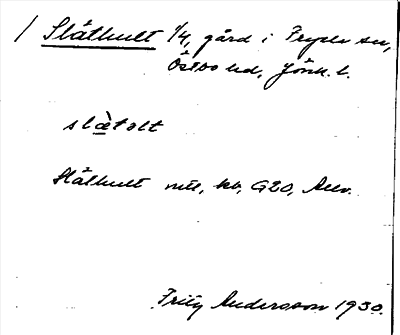 / Slåthult 1/4, gård i Fryele sn,
Östbo hd, Jönk. l.
slàtɑlt
Slåthult mtl, kb, G20,
Fritz Andersson 1930.